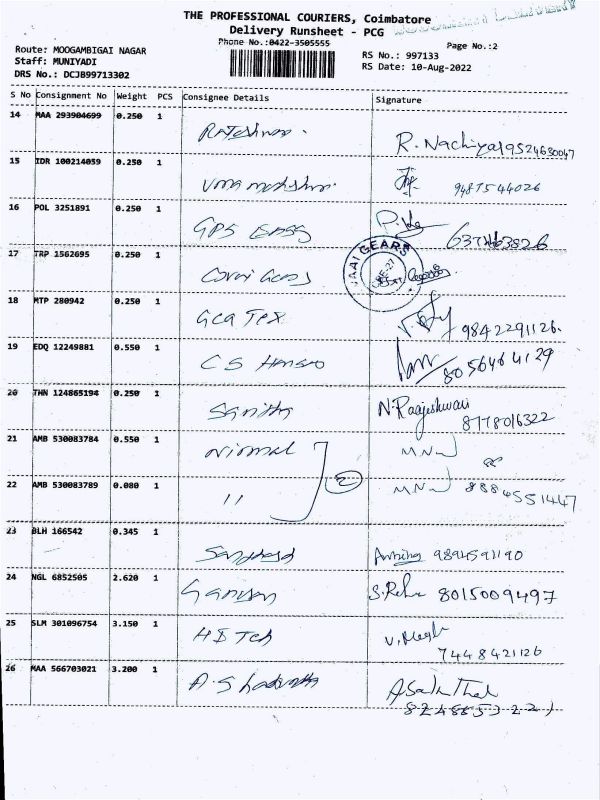 THE PROFESSIONAL COURIERS, Coimbatore
Delivery Runsheet - PCG
Phone No.:0422-3505555
Page No.:2
Route: MOOGAMBIGAI NAGAR
Staff: MUNIYADI
DRS No.: DCJB99713302
RS No.: 997133
RS Date: 10-Aug-2022
S No Consignment No Weight PCS Consignee Details Signature
14 MAA 293904699 0.250 1 R. Nachiyar 9524630047
15 IDR 100214059 0.250 1 9487544026
16 POL 3251891 0.250 1 GPS
17 TRP 1562695 0.250 1
GEARS
18 MTP 280942 0.250 1 Gea Tex 9842291126.
19 EDQ 12249881 0.550 1 CS 8056464129
20 THN 124865194 0.250 1 N. Raajeshwari
8778016322
21 AMB 530083784 0.550 1 Nirmal
22 AMB 530083789 0.080 1 11 2 8884551447
23 BLH 166542 0.345 1 9894591190
24 NGL 6852505 2.620 1 Ganesan S. Rekha 8015009497
25 SLM 301096754 3.150 1 HI Tech
7448421126
26 MAA 566703021 3.200 1